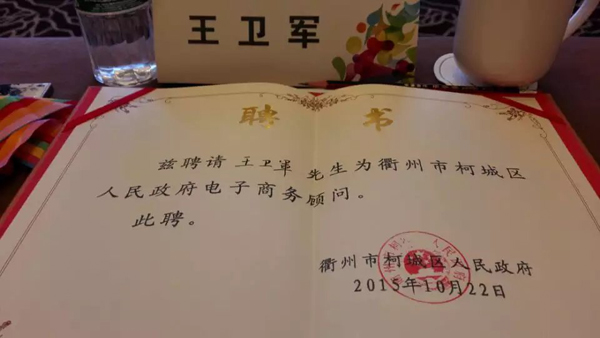 王卫军
聘书
兹聘请王卫军先生为衢州市柯城区
人民政府电子商务顾问。
此聘。
衢州市柯城区人民政府
2015年10月22日